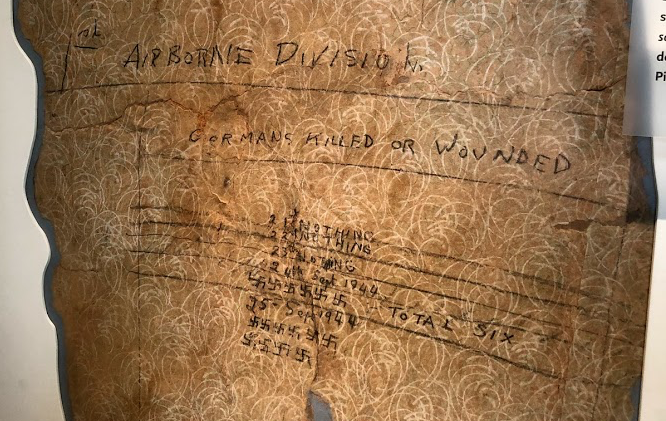 1st AIRBORNE DIVISION.
GERMANS KILLED OR WOUNDED
21st NOTHING
22nd NOTHING
23rd NOTHING
24th Sept 1944
卐卐卐卐卐卐 TOTAL SIX
25th Sept 1944
卐卐卐卐卐卐
卐卐卐卐卐